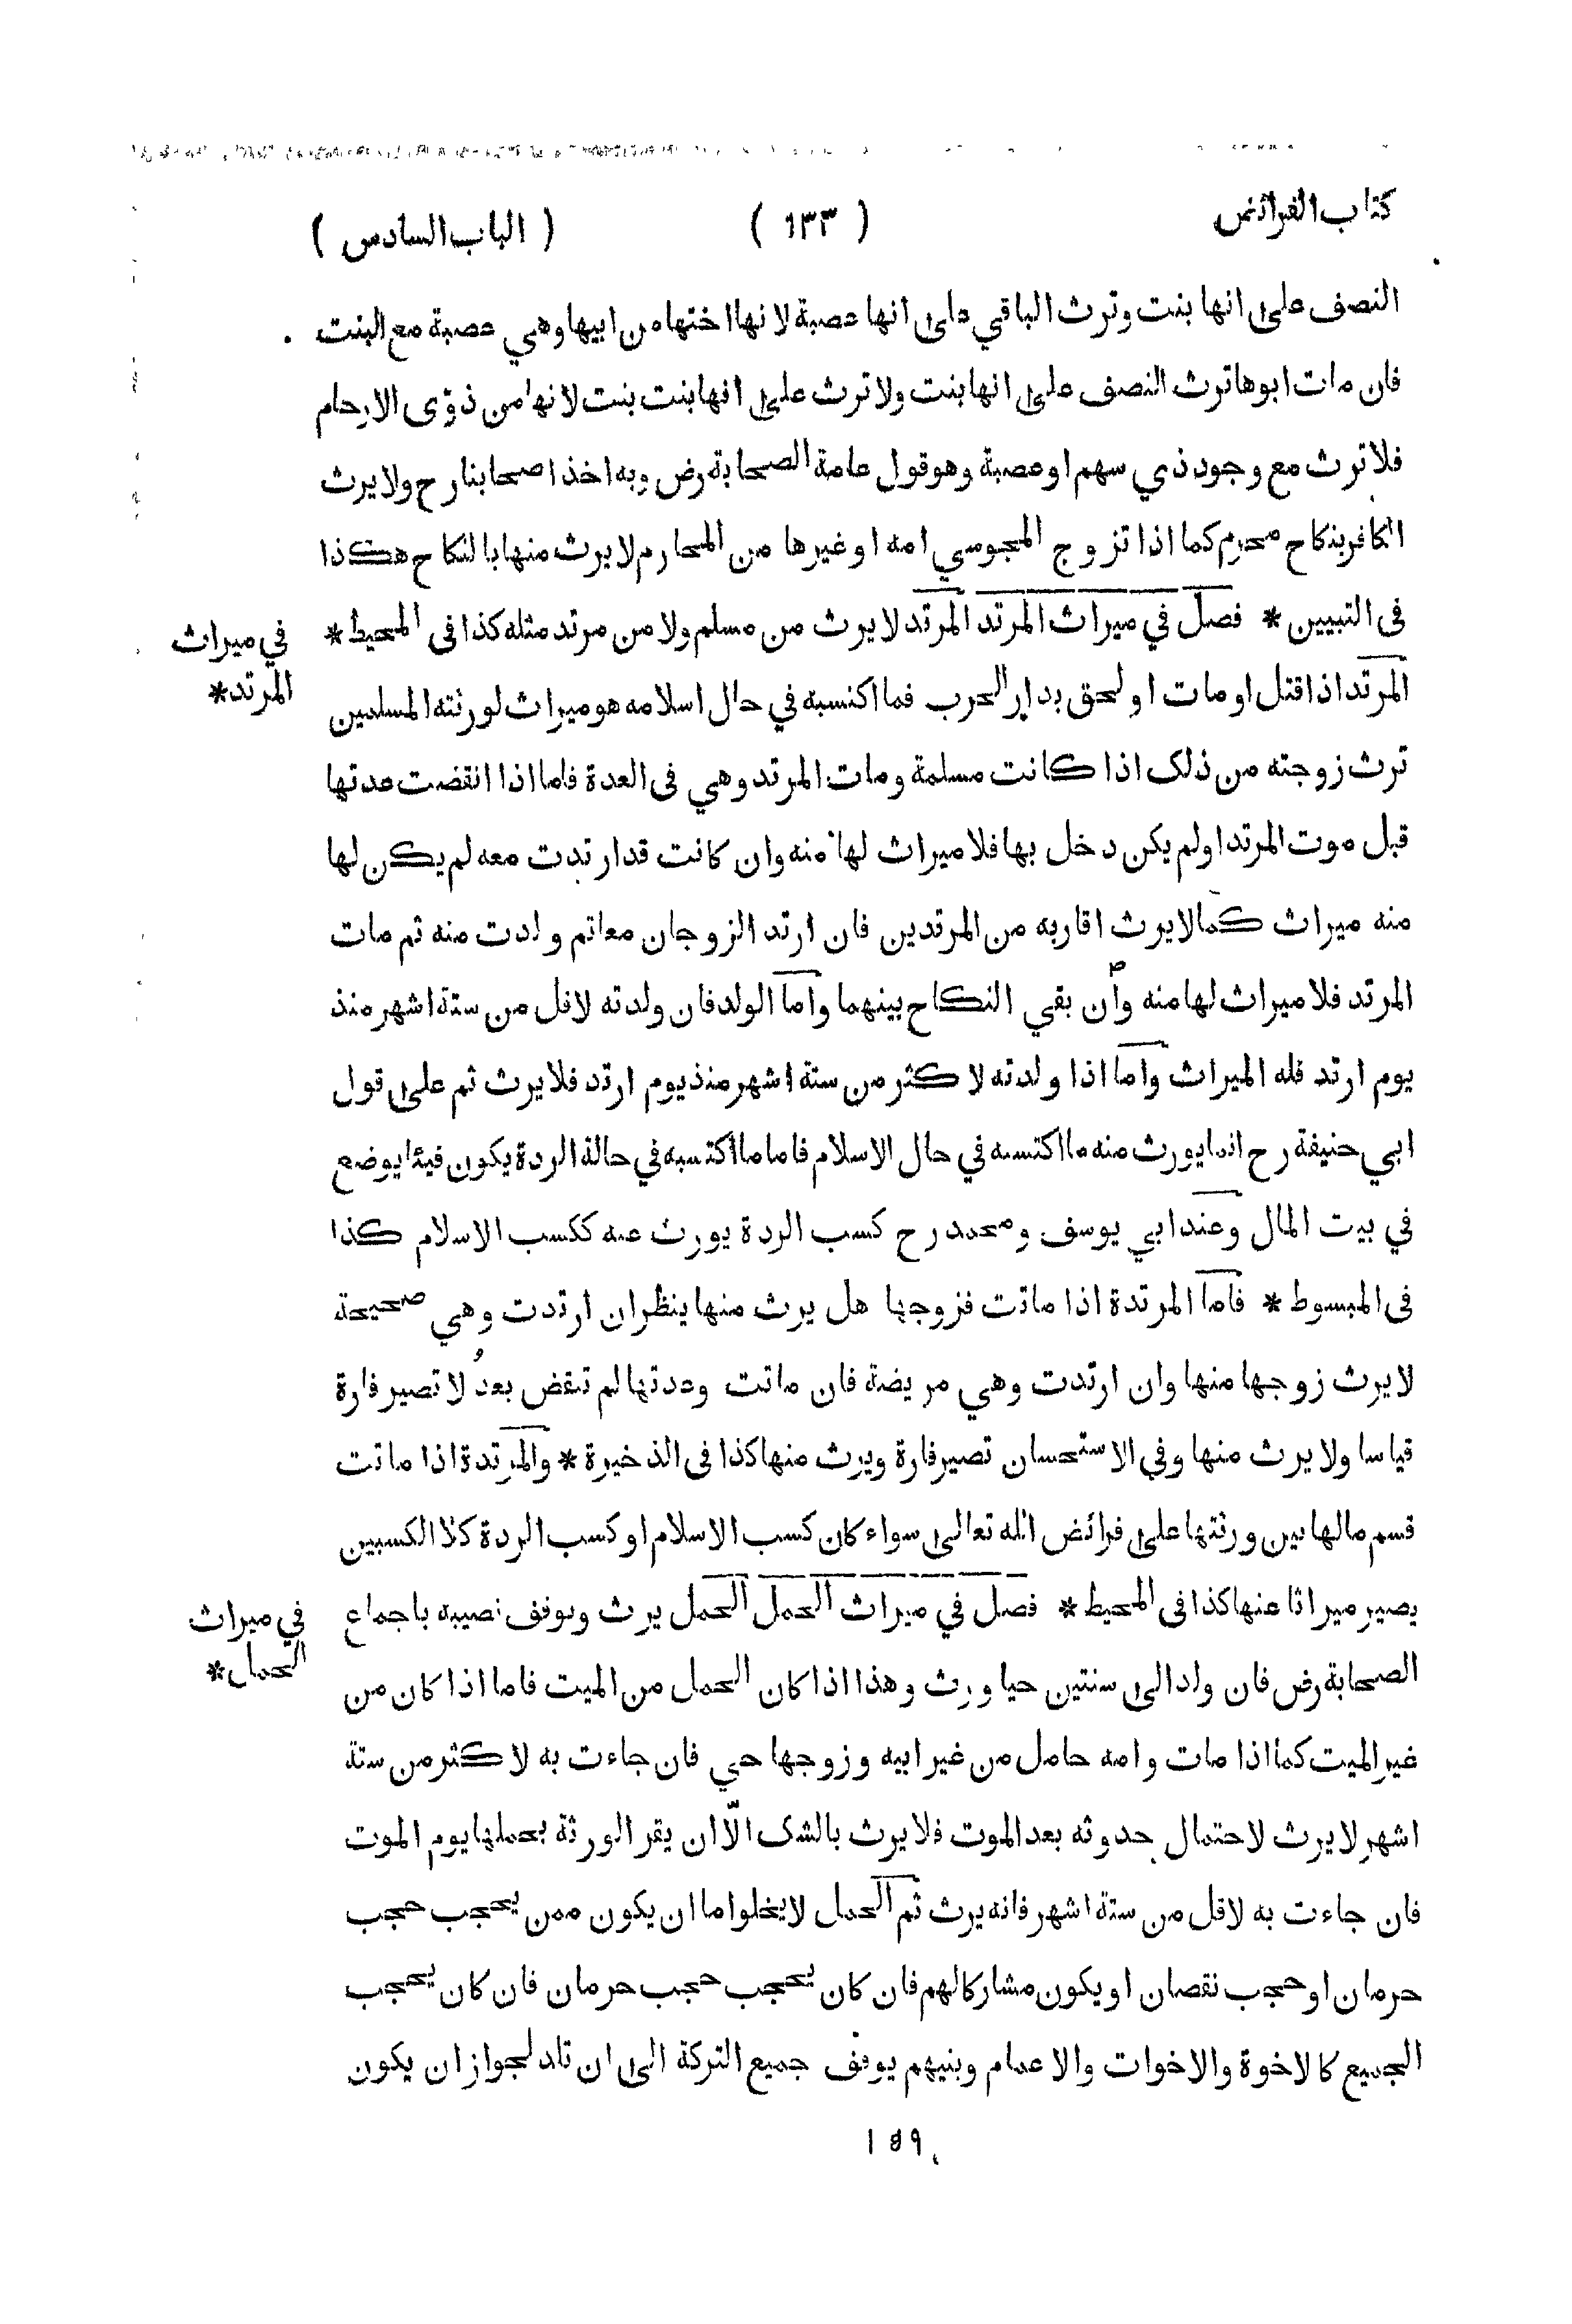 كتاب الفرائض
( ١٣٣ )
( الباب السادس )
النصف على انها بنت وترث الباقي على انها عصبة لانها اختها من ابيها وهي عصبة مع البنت
فان مات ابوها ترث النصف على انها بنت ولا ترث على انها بنت بنت لانها من ذوى الارحام
فلا ترث مع وجود ذي سهم او عصبة وهو قول عامة الصحابة رض وبه اخذ اصحابنا رح ولا يرث
الكافر بنكاح محرم كما اذا تزوج المجوسي امه او غيرها من المحارم لا يرث منها بالنكاح هكذا
فى التبيين * فصل في ميراث المرتد المرتد لا يرث من مسلم ولا من مرتد مثله كذا فى المحيط *
في ميراث
المرتد *
المرتد اذا قتل او مات او لحق بدار الحرب فما اكتسبه في حال اسلامه هو ميراث لورثته المسلمين
ترث زوجته من ذلك اذا كانت مسلمة ومات المرتد وهي فى العدة فاما اذا انقضت عدتها
قبل موت المرتد او لم يكن دخل بها فلا ميراث لها منه وان كانت قد ارتدت معه لم يكن لها
منه ميراث كما لا يرث اقاربه من المرتدين فان ارتد الزوجان معا ثم ولدت منه ثم مات
المرتد فلا ميراث لها منه وان بقي النكاح بينهما واما الولد فان ولدته لاقل من ستة اشهر منذ
يوم ارتد فله الميراث واما اذا ولدته لاكثر من ستة اشهر منذ يوم ارتد فلا يرث ثم على قول
ابي حنيفة رح انما يورث منه ما اكتسبه في حال الاسلام فاما ما اكتسبه في حالة الردة يكون فيئا يوضع
في بيت المال وعند ابي يوسف ومحمد رح كسب الردة يورث عنه ككسب الاسلام كذا
فى المبسوط * فاما المرتدة اذا ماتت فزوجها هل يرث منها ينظر ان ارتدت وهي صحيحة
لا يرث زوجها منها وان ارتدت وهي مريضة فان ماتت وعدتها لم تنقض بعدُ لا تصير فارة
قياسا ولا يرث منها وفي الاستحسان تصير فارة ويرث منها كذا فى الذخيرة * والمرتدة اذا ماتت
قسم مالها بين ورثتها على فرائض الله تعالى سواء كان كسب الاسلام او كسب الردة كلا الكسبين
يصير ميراثا عنها كذا فى المحيط * فصل في ميراث الحمل الحمل يرث ويوقف نصيبه باجماع
في ميراث
الحمل *
الصحابة رض فان ولد الى سنتين حيا ورث وهذا اذا كان الحمل من الميت فاما اذا كان من
غير الميت كما اذا مات وامه حامل من غير ابيه وزوجها حي فان جاءت به لاكثر من ستة
اشهر لا يرث لاحتمال حدوثه بعد الموت فلا يرث بالشك الّا ان يقر الورثة بحملها يوم الموت
فان جاءت به لاقل من ستة اشهر فانه يرث ثم الحمل لا يخلوا ما ان يكون ممن يحجب حجب
حرمان او حجب نقصان او يكون مشاركا لهم فان كان يحجب حجب حرمان فان كان يحجب
الجميع كالاخوة والاخوات والاعمام وبنيهم يوقف جميع التركة الى ان تلد لجواز ان يكون